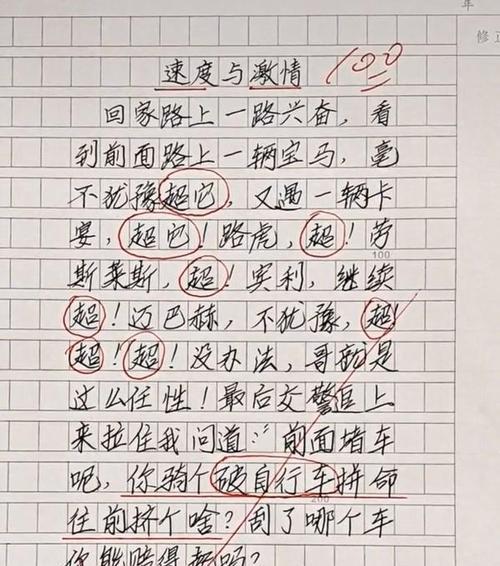 年
修正
速度与激情
100
回家路上一路兴奋，看
到前面路上一辆宝马，毫
不犹豫超它，又遇一辆卡
宴，超它！路虎，超！劳
100
斯莱斯，超！宾利，继续
超！迈巴赫，不犹豫，超！
超！超！没办法，哥就是
这么任性！最后交警追上
来拉住我问道：“前面堵车
呢，你骑个破自行车拼命
200
往前挤个啥？刮了哪个车
你能赔得起吗？